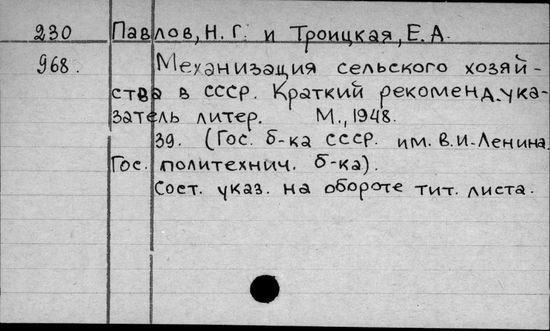 230 Павлов, Н. Г. и Троицкая, Е. А.
968. Механизация сельского хозяй-
ства в СССР. Краткий рекоменд. ука-
затель литер. М., 1948.
39. (Гос. б-ка СССР им. В. И. Ленина.
Гос. политехнич. б-ка).
Сост. указ. на обороте тит. листа.